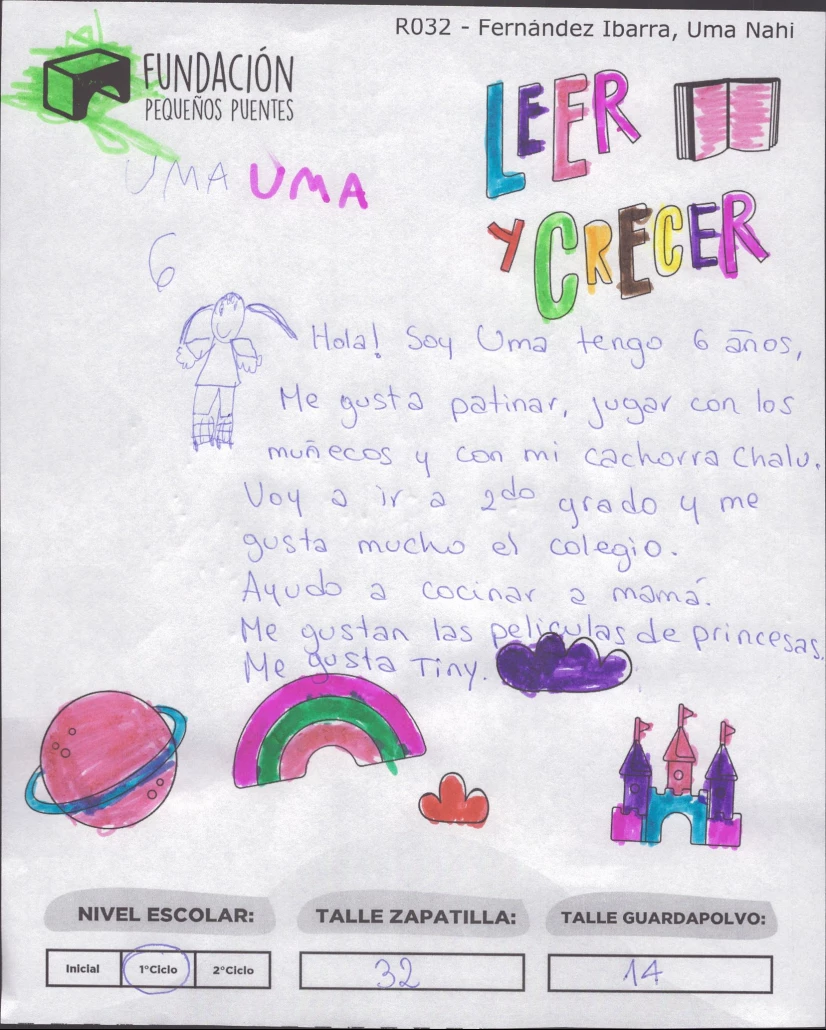 R032 - Fernández Ibarra, Uma Nahi
FUNDACIÓN
PEQUEÑOS PUENTES
LEER
Y CRECER
UMA UMA
6
Hola! Soy Uma tengo 6 años,
Me gusta patinar, jugar con los
muñecos y con mi cachorra Chalu.
Voy a ir a 2do grado y me
gusta mucho el colegio.
Ayudo a cocinar a mamá.
Me gustan las películas de princesas.
Me gusta Tiny.
NIVEL ESCOLAR:
TALLE ZAPATILLA:
TALLE GUARDAPOLVO:
Inicial
1°Ciclo
2°Ciclo
32
14